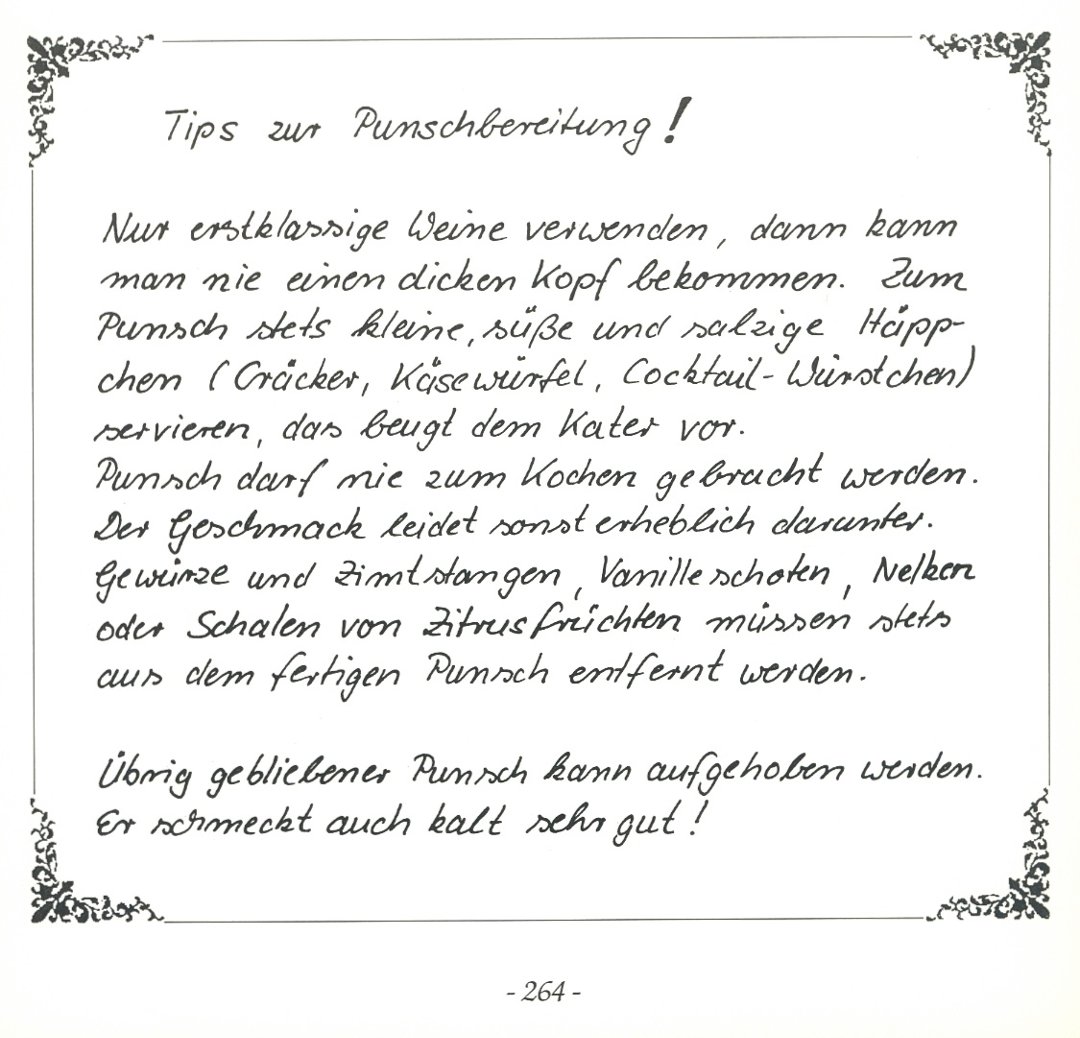 Tips zur Punschbereitung!
Nur erstklassige Weine verwenden, dann kann
man nie einen dicken Kopf bekommen. Zum
Punsch stets kleine, süße und salzige Häpp-
chen (Cräcker, Käsewürfel, Cocktail-Würstchen)
servieren, das beugt dem Kater vor.
Punsch darf nie zum Kochen gebracht werden.
Der Geschmack leidet sonst erheblich darunter.
Gewürze und Zimtstangen, Vanilleschoten, Nelken
oder Schalen von Zitrusfrüchten müssen stets
aus dem fertigen Punsch entfernt werden.
Übrig gebliebener Punsch kann aufgehoben werden.
Er schmeckt auch kalt sehr gut!
- 264 -